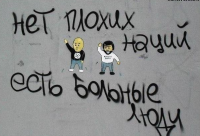 нет плохих
наций
есть больные
люди